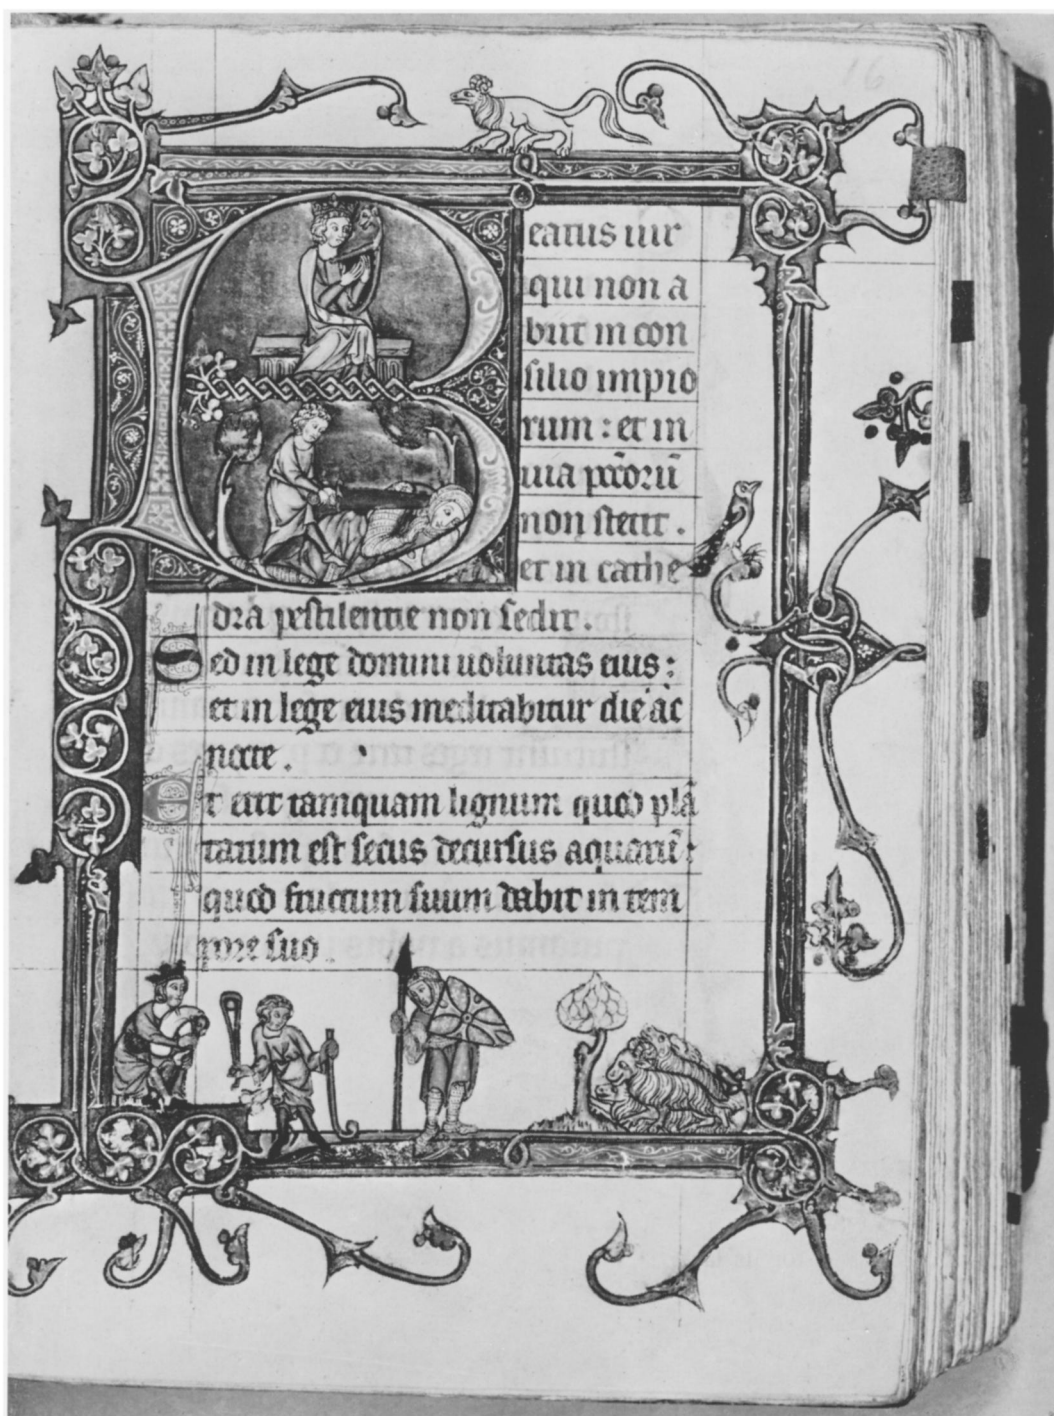 16
Beatus uir
qui non a
biit in con
silio impio
rum : et in
uia pccōrū
non stetit .
et in cathe
drā pestilentie non sedit .
Sed in lege domini uoluntas eius :
et in lege eius meditabitur die ac
nocte .
Et erit tamquam lignum quod plā
tatum est secus decursus aquarū :
quod fructum suum dabit in tem
pore suo .